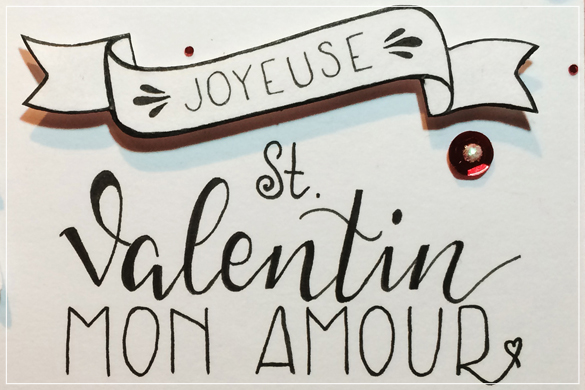 JOYEUSE
St.
Valentin
MON AMOUR